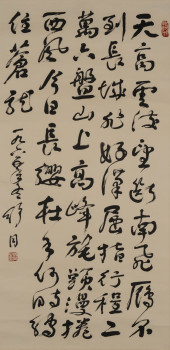 天高雲淡望斷南飛雁不
到長城非好漢屈指行程二
萬六盤山上高峰旄頭漫捲
西風今日長纓在手何時縛
住蒼龍
舒同